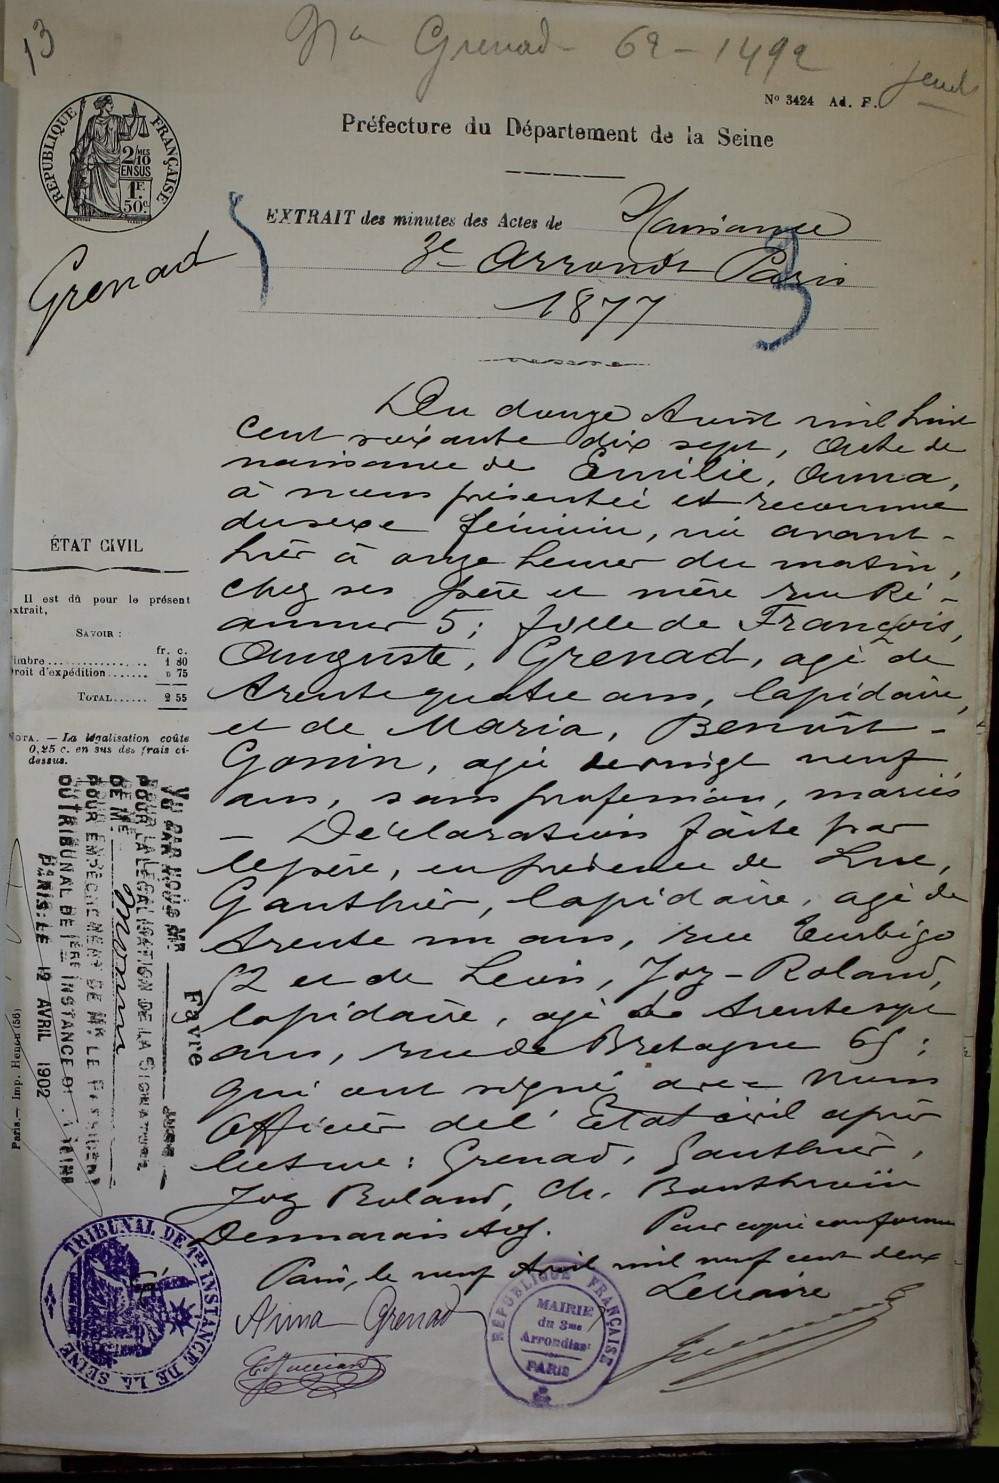 13
Grenad - 62 - 1492
No 3424 Ad. F.
Préfecture du Département de la Seine
RÉPUBLIQUE FRANÇAISE
2/10 MES
EN SUS
1F.
50c
EXTRAIT des minutes des Actes de Naissance
3e Arrondt Paris
1877
Grenad
Du douze Août mil huit
cent soixante dix sept, Acte de
naissance de Emilie, Anna,
à nous présentée et reconnue
du sexe féminin, née avant-
hier à onze heures du matin,
chez ses père et mère rue Ré-
aumur 5; fille de François,
Auguste, Grenad, agé de
trente quatre ans, lapidaire,
et de Maria, Benoît-
Gonin, agée de vingt neuf
ans, sans profession, mariés
- Déclaration faite par
le père, en présence de Luc,
Gauthier, lapidaire, agé de
trente un ans, rue Turbigo
52 et de Louis, Joz-Roland,
lapidaire, agé de trente sept
ans, rue de Bretagne 65;
qui ont signé avec nous
Officier de l'Etat civil après
lecture: Grenad, Gauthier,
Joz Roland, Ch.
Desmarais Adj. Pour copie conforme
Paris, le neuf Avril mil neuf cent deux
Anna Grenad
ÉTAT CIVIL
Il est dû pour le présent
extrait,
SAVOIR :
fr. c.
Timbre 1 80
Droit d'expédition » 75
TOTAL 2 55
NOTA. — La légalisation coûte
0,25 c. en sus des frais ci-
dessus.
VU PAR NOUS MR Favre JUGE
POUR LA LÉGALISATION DE LA SIGNATURE
DE M.
POUR EMPÊCHEMENT DE MR LE PRÉSIDENT
DU TRIBUNAL DE 1ÈRE INSTANCE DE LA SEINE
PARIS, LE 12 AVRIL 1902
Paris. — Imp. Henon (56)
TRIBUNAL DE 1RE INSTANCE DE LA SEINE
RÉPUBLIQUE FRANÇAISE
MAIRIE
du 3me
Arrondisst
PARIS